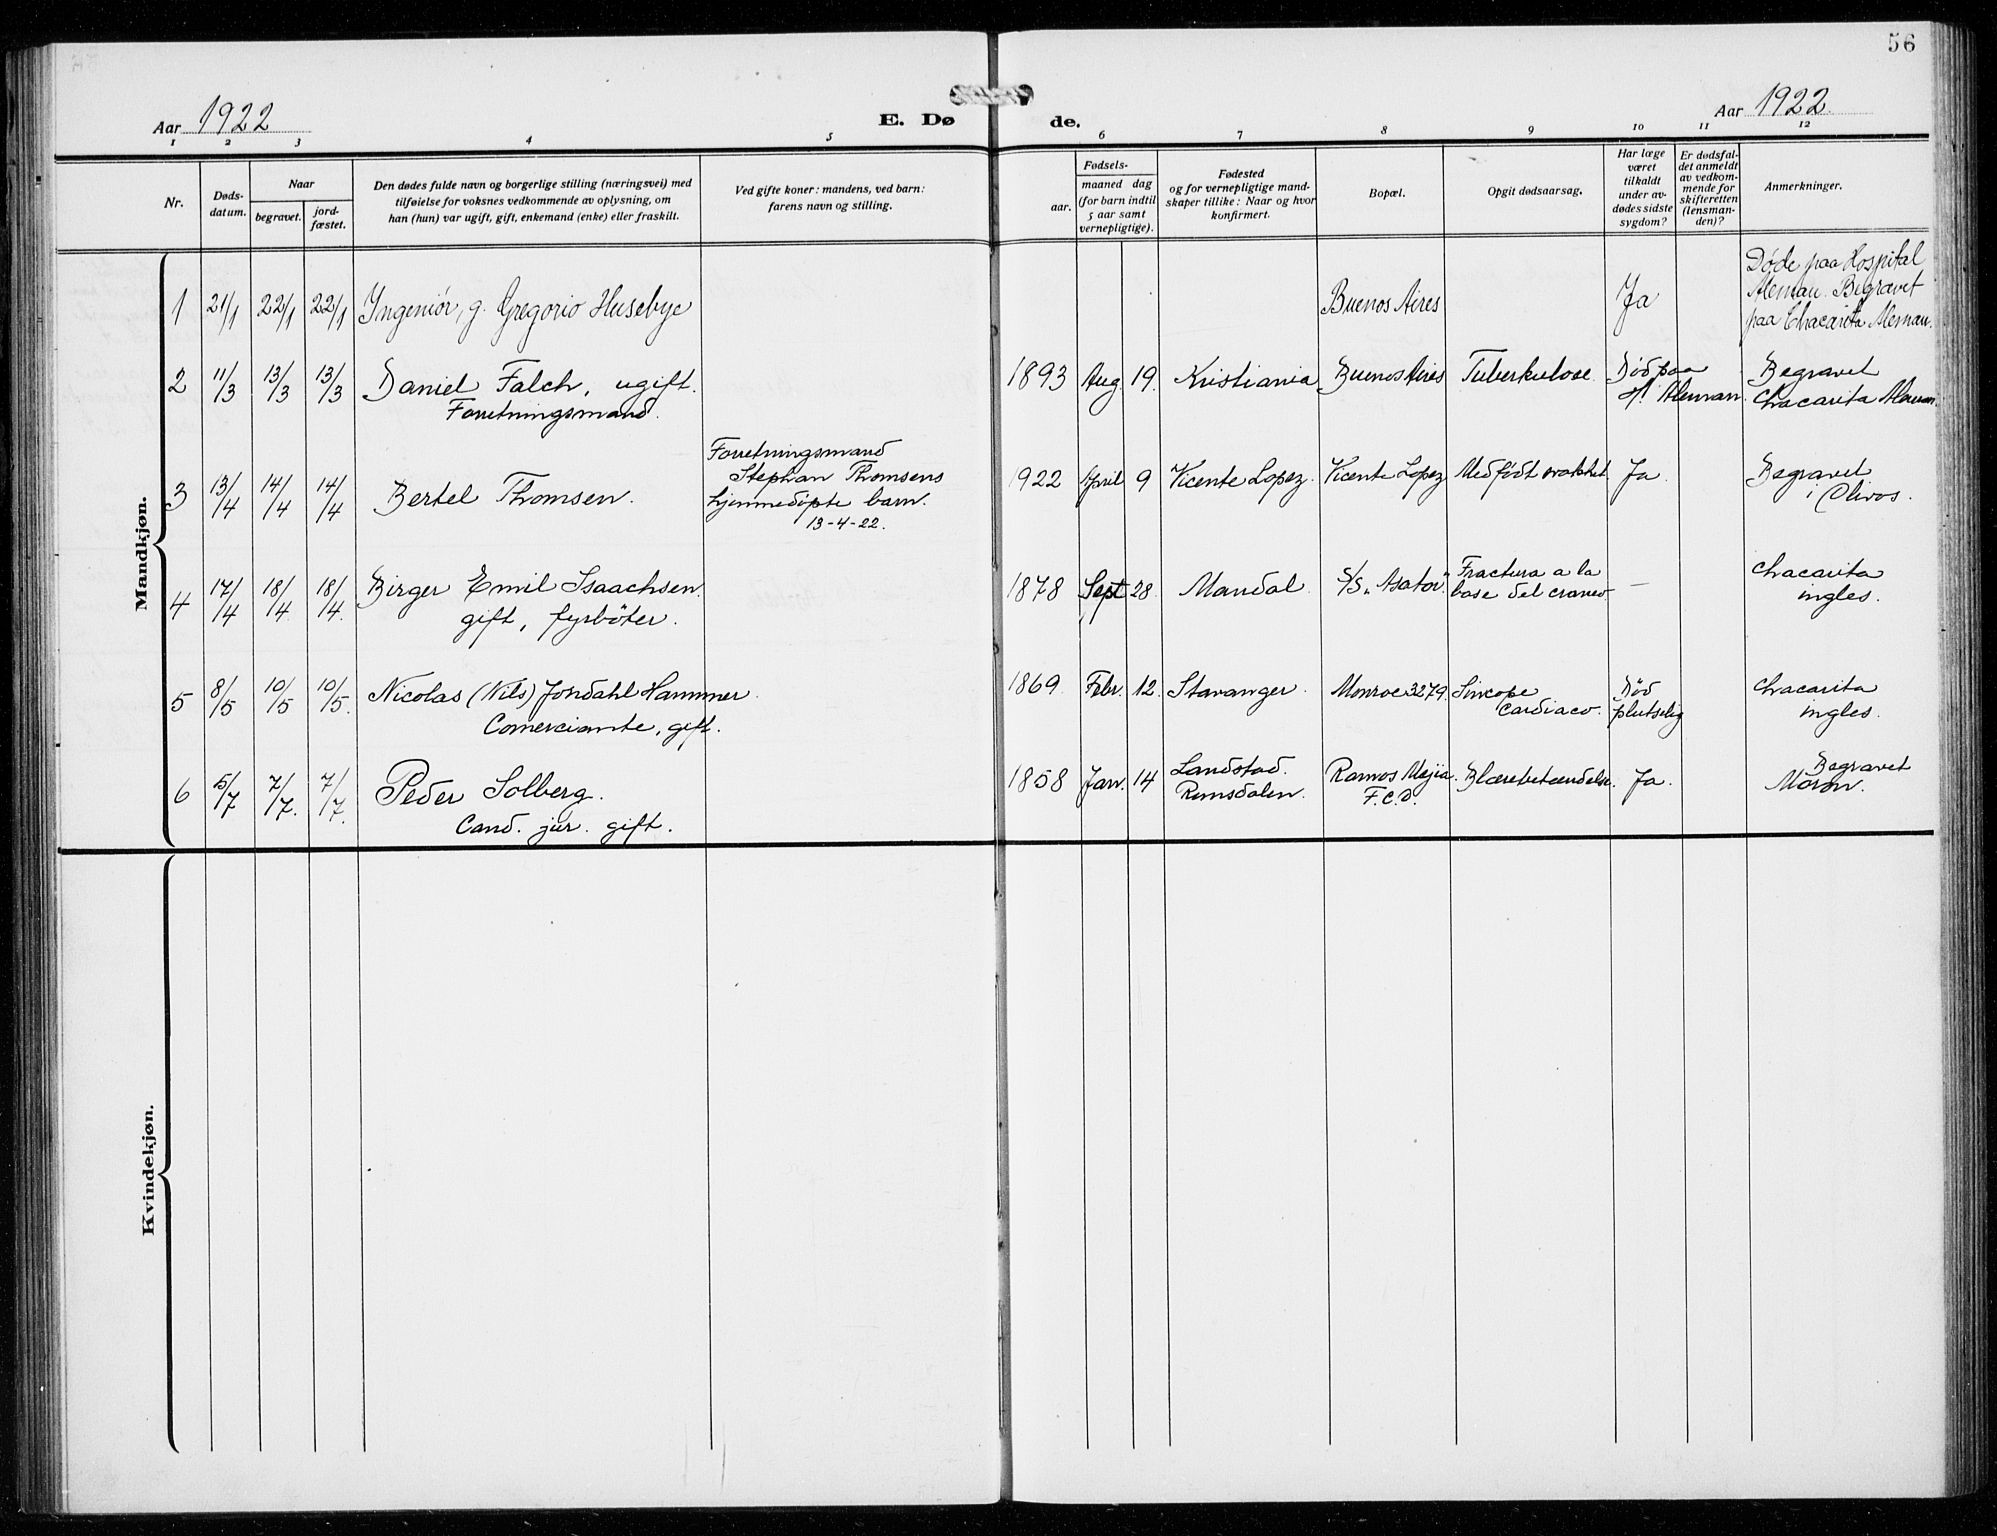 56
Aar 1922
E. Dø
de.
Aar 1922.
1 2 3 4 5 6 7 8 9 10 11 12
Nr.
Døds-
datum.
Naar
begravet.
jord-
fæstet.
Den dødes fulde navn og borgerlige stilling (næringsvei) med
tilføielse for voksnes vedkommende av oplysning, om
han (hun) var ugift, gift, enkemand (enke) eller fraskilt.
Ved gifte koner: mandens, ved barn:
farens navn og stilling.
Fødsels-
aar.
maaned dag
(for barn indtil
5 aar samt
vernepligtige).
Fødested
og for vernepligtige mand-
skaper tillike: Naar og hvor
konfirmert.
Bopæl.
Opgit dødsaarsag.
Har læge
været
tilkaldt
under av-
dødes sidste
sygdom?
Er dødsfal-
det anmeldt
av vedkom-
mende for
skifteretten
(lensman-
den)?
Anmerkninger.
Mandkjøn.
1 21/1 22/1 22/1 Ingeniór, g. Gregorio Husebye
Buenos Aires
Ja
Døde paa Hospital
Aleman. Begravet
paa Chacarita Aleman.
2 11/3 13/3 13/3 Daniel Falch, ugift.
Forretningsmand.
1893 Aug 19. Kristiania Buenos Aires Tuberkulose.
Død paa
H. Aleman.
Begravet
Chacarita Aleman.
3 13/4 14/4 14/4 Bertel Thomsen.
Forretningsmand
Stephan Thomsens
hjemmedöpte barn.
13-4-22.
1922 April 9 Vicente Lopez. Vicente Lopez Medfödt svakhet Ja.
Begravet
i Olivos.
4 17/4 18/4 18/4 Birger Emil Isaachsen.
gift, fyrböter.
1878 Sept 28. Mandal. S/S. "Asator"
Fractura a la
base del craneo
—
Chacarita
ingles.
5 8/5 10/5 10/5. Nicolas (Nils) Jondahl Hammer.
Comerciante, gift.
1869 Febr. 12. Stavanger. Monroe 3279.
Sincope
Cardiaco.
Död
plutselig
Chacarita
ingles.
6 5/7 7/7. 7/7. Peder Solberg.
Cand. jur. gift.
1858 Jan. 14
Landstad.
Romsdalen.
Ramos Mejia.
F.C.O.
Blærebetændelse. Ja.
Begravet
Moron.
Kvindekjøn.